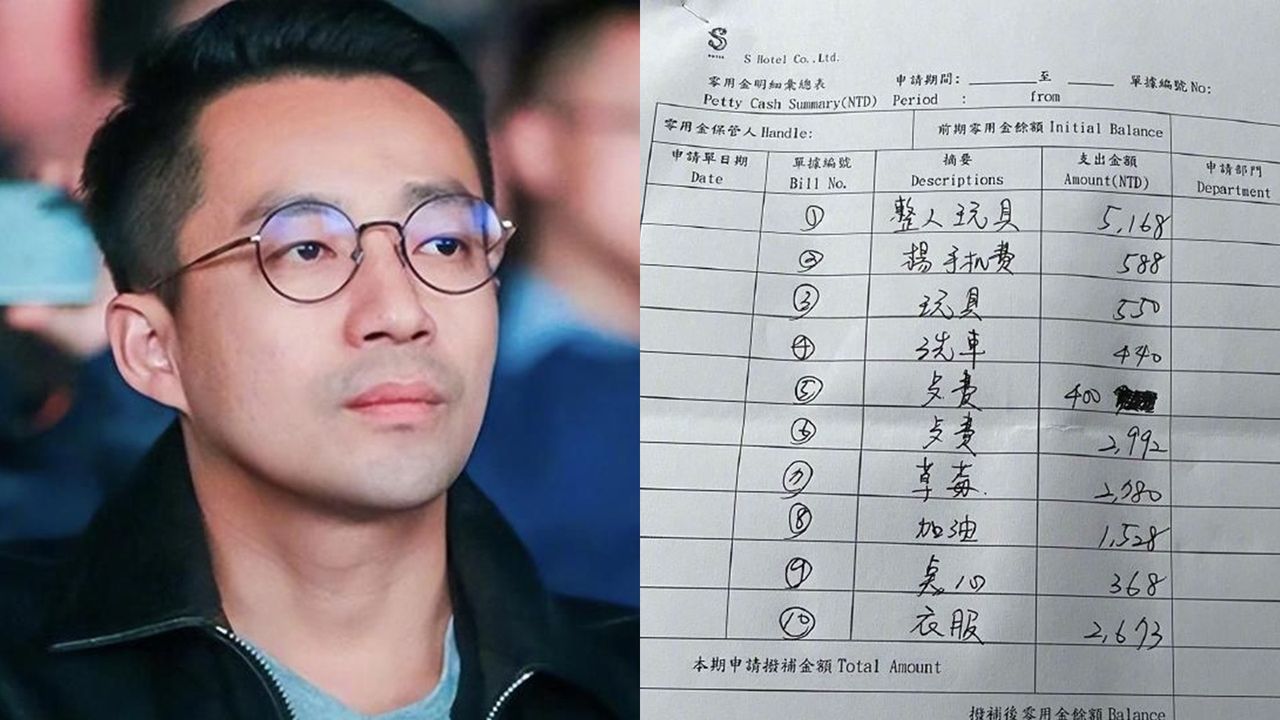 S
S Hotel Co.,Ltd.
零用金明細彙總表 申請期間: ______至 ______ 單據編號No:
Petty Cash Summary(NTD) Period : from
零用金保管人Handle: 前期零用金餘額 Initial Balance
申請單日期 單據編號 摘要 支出金額 申請部門
Date Bill No. Descriptions Amount(NTD) Department
① 整人玩具 5,168
② 楊手机費 588
③ 玩具 550
④ 洗車 440
⑤ 费 400
⑥ 费 2,992
⑦ 草莓. 2,780
⑧ 加油 1,528
⑨ 點心 368
⑩ 衣服 2,673
本期申請撥補金額 Total Amount
撥補後零用金餘額 Balance